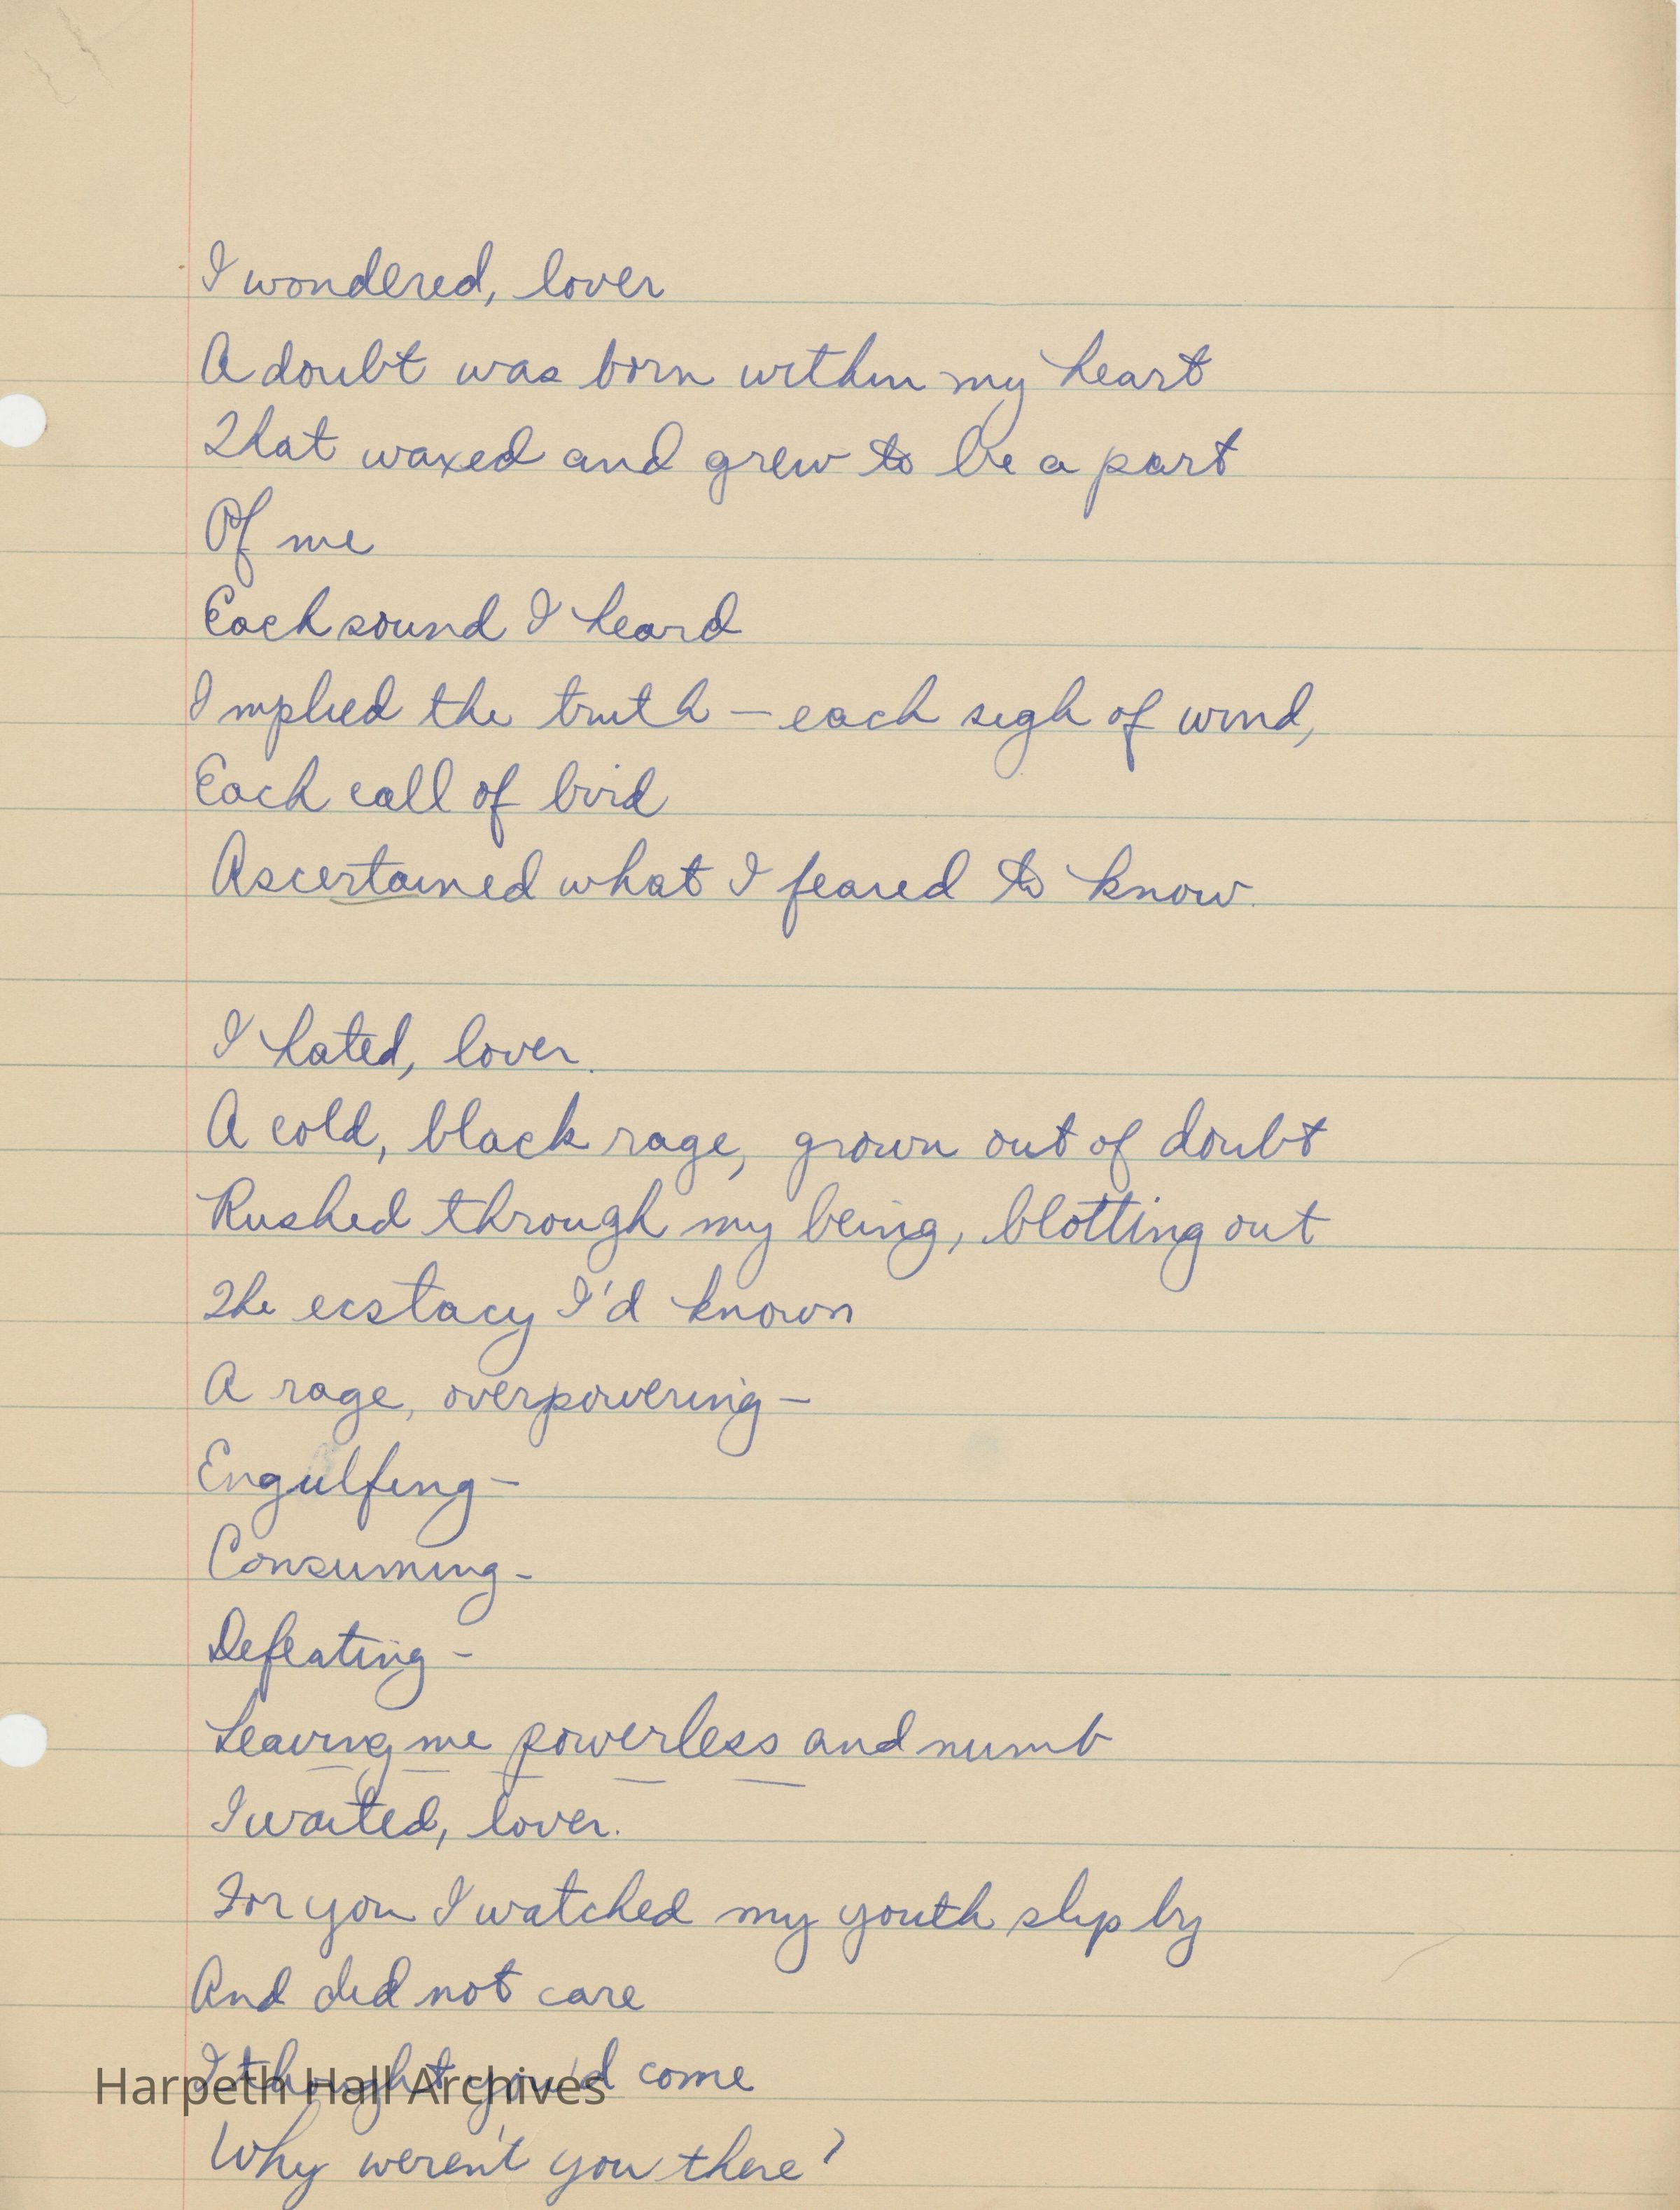 I wondered, lover
A doubt was born within my heart
That waxed and grew to be a part
Of me
Each sound I heard
Implied the truth — each sigh of wind,
Each call of bird
Ascertained what I feared to know.
I hated, lover.
A cold, black rage, grown out of doubt
Rushed through my being, blotting out
The ecstacy I'd known
A rage, overpowering —
Engulfing —
Consuming -
Defeating -
Leaving me powerless and numb
I waited, lover.
For you I watched my youth slip by
And did not care
I thought you'd come
Harpeth Hall Archives
Why weren't you there?